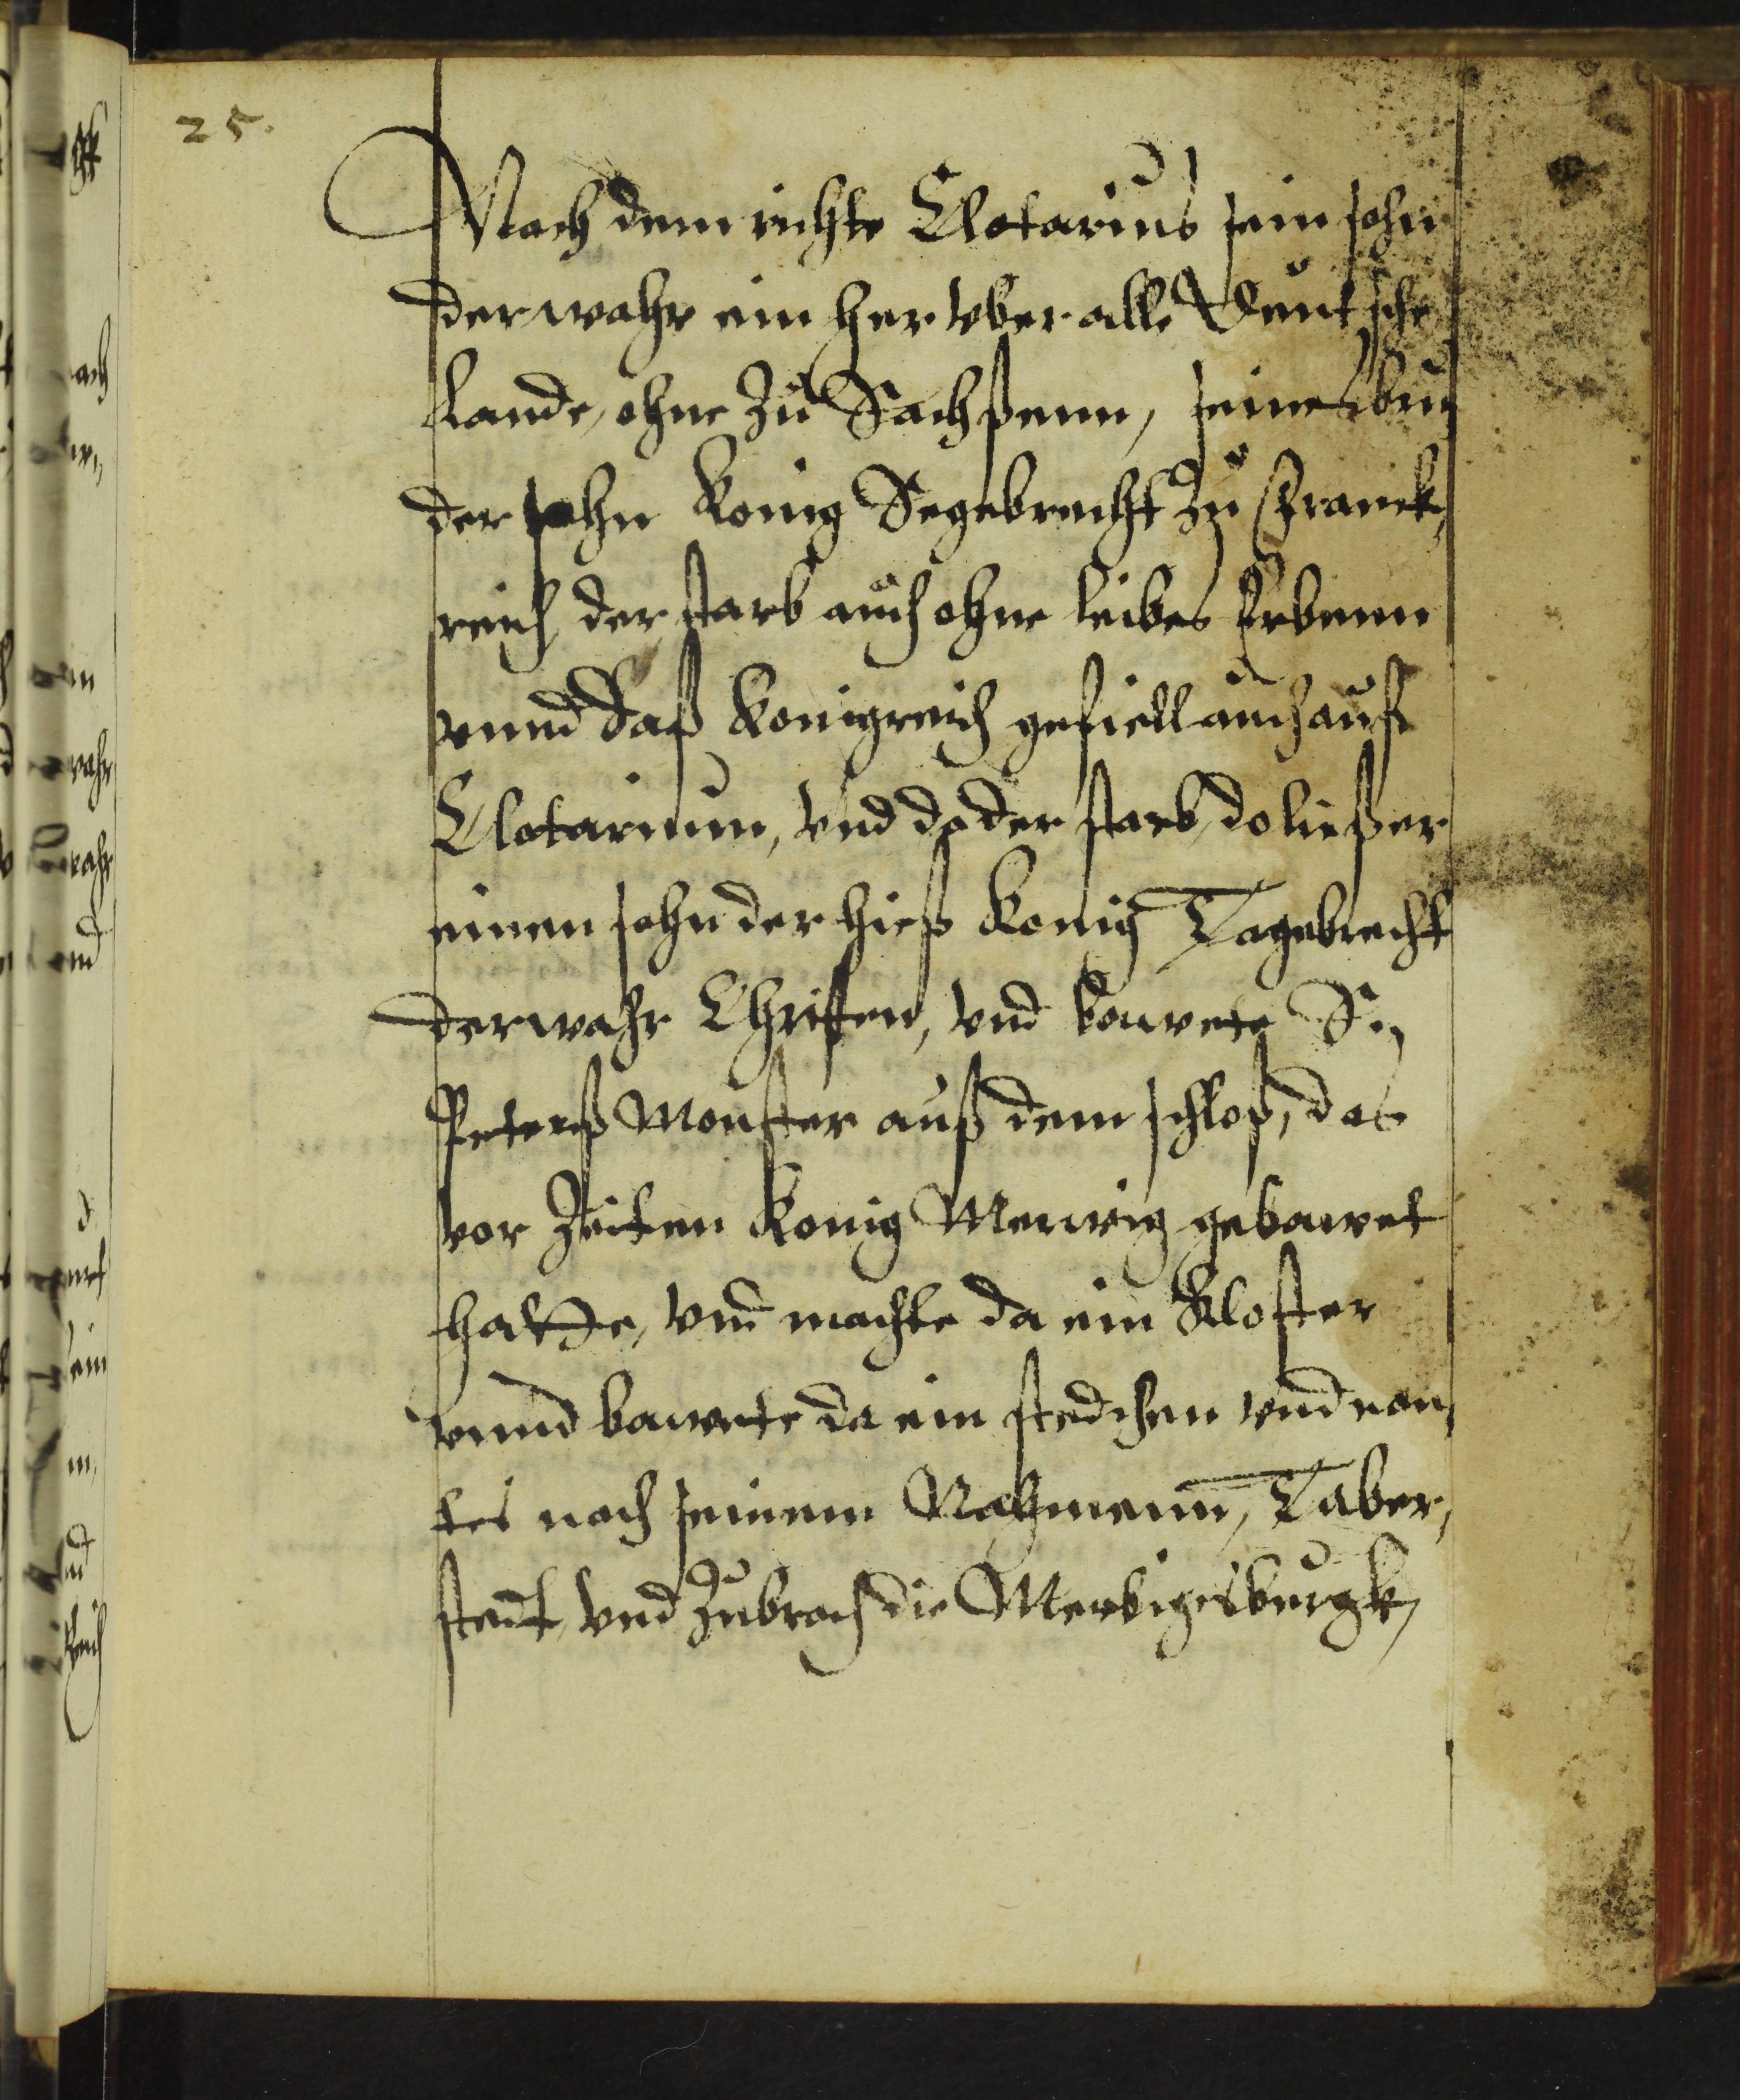 25.
Nach dem richte Clotarius sein sohn
der wahr ein her vber alle Deutsche
Lande, ohne zu Sachßenn, seines bru
der sohn Konig Segebrecht zu Franck,
reich, der starb auch ohne leibes Erbenn
vnnd daß Konigreich gefiell auch auf
Clotarium, vnd do der starb, do ließ er
einen sohn der hieß Konig Tagebrecht
der wahr Christen, vnd bawete S.
Peterß Monster auß dem schloß, das
vor Zeiten Konig Merwig gebawet
hatte, vnd machte da ein Kloster
vnnd bawete da ein stedichen vnd nan,
tes nach seinem Nahmenn, Taber,
stedt, vnd zubrach die Merbigisburgk,